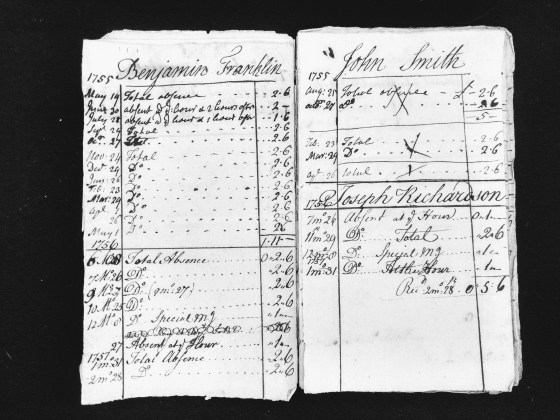 Benjamin Franklin
1755
May 19 Total absence 2-6
June 30 absent a hour & 2 hours 2-
July 28 absent a hour & 1 hour 1-6
Sept 29 Total 2-6
Oct. 27 2-6
Nov. 24 Total 2-6
Dec. 29 Do 2-6
Jan: 26 Do 2-6
Feb: 23 Do 2-6
Mar: 29 Do 2-6
Apl. 26 Do 2-6
May 1 Do 2-6
1756 1-11-
Total Absence 0-2-6
26 Do 2-6
27) 2-6
10 Mo. 25 D. 2-6
12 Mo. 8 D. Special Mg -1-
27 Absent at Hour -1-
1757 1 mo 31 Total Absence -2-6
2 mo: 28 D. 2-6
John Smith
1755
Aug: 25 Total absence 2-6
Do 2-6
5-
Feb. 23 Total 2-6
Mar: 29 Do 2-6
Apl. 26 Total 2-6
1756 Joseph Richardson
7 mo 24 Absent at Hour 0-1-
11 mo 29 Do Total -2-6
Do Special Mg -1-
1 mo 31 Do At the Hour -1-
Recd 2 mo. 28. 0 5 6